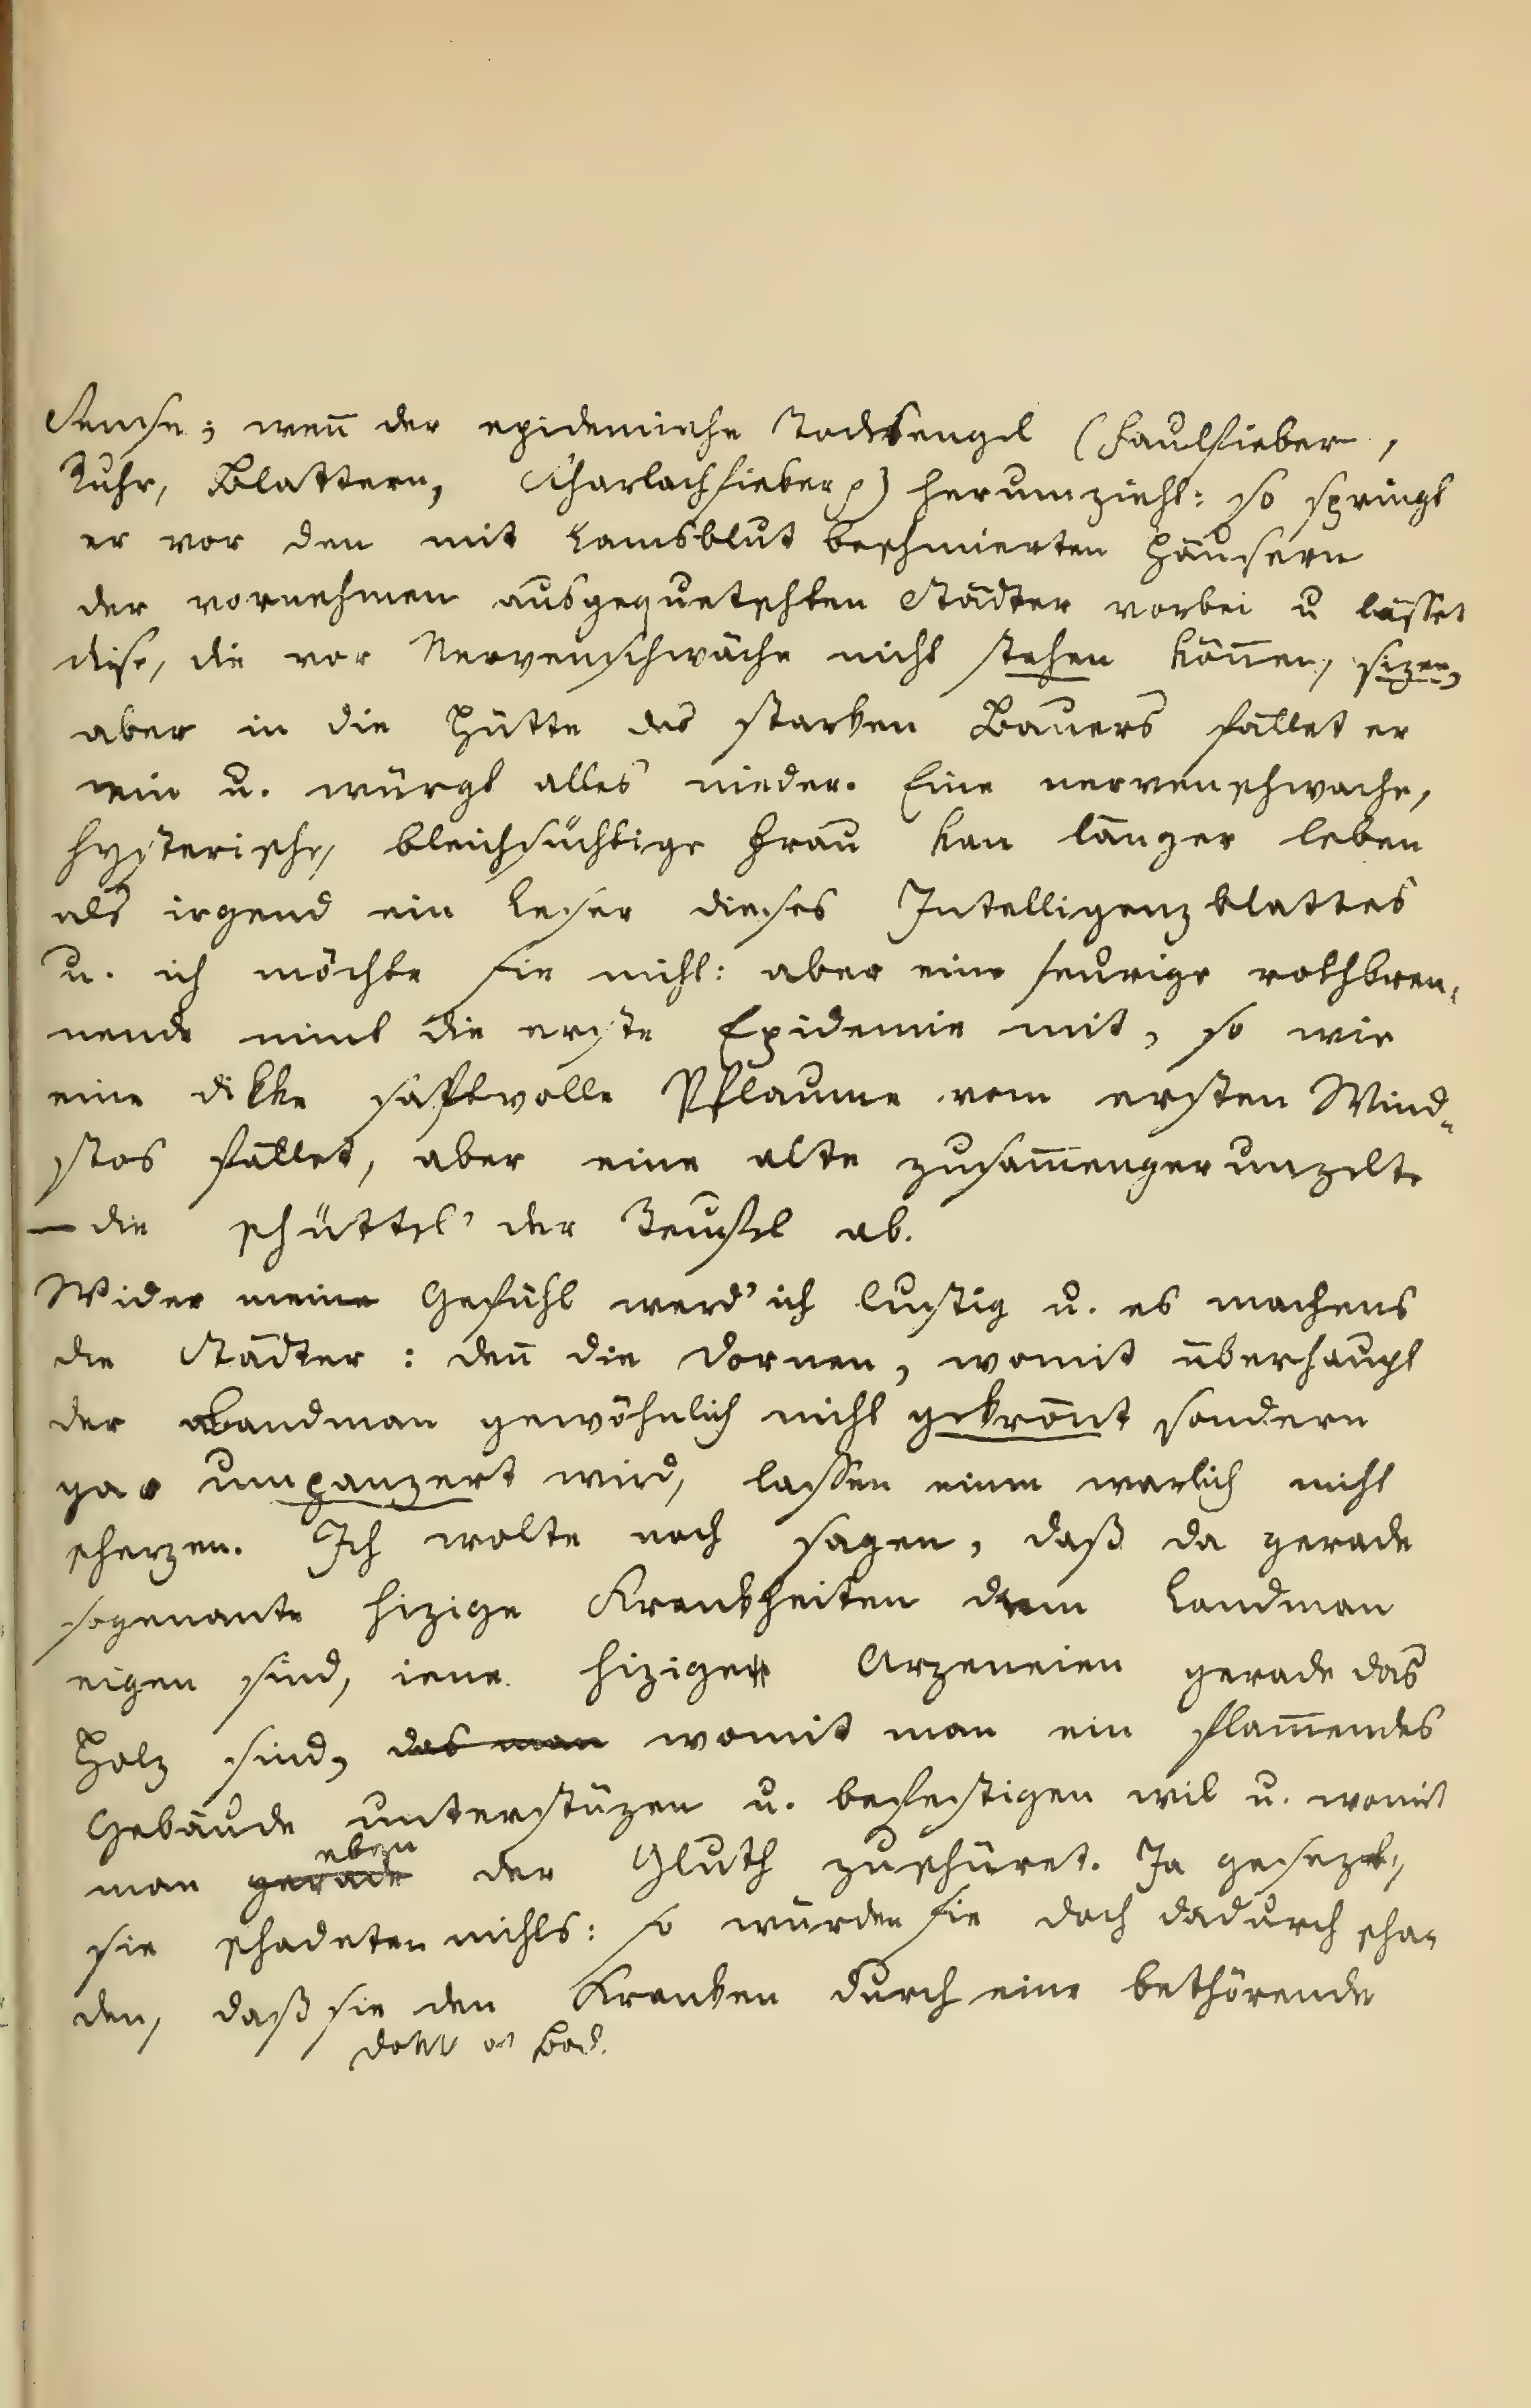 Sense; weñ der epidemische Todesengel (Faulfieber,
Ruhr, Blattern, Scharlachfieber p) herumzieht: so springt
er vor den mit Lamsblut beschmierten Häusern
der vornehmen ausgequetschten Städter vorbei u lässet
diese, die vor Nervenschwäche nicht stehen köñen, sizen,
aber in die Hütte des starken Bauers fället er
ein u. würgt alles nieder. Eine nervenschwache,
hysterische, bleichsüchtige Frau kan länger leben
als irgend ein Leser dieses Intelligenzblattes
u. ich möchte sie nicht: aber eine feurige rothbren-
nende nimt die erste Epidemie mit, so wie
eine dikke saftvolle Pflaume vom ersten Wind-
stos fället, aber eine alte zusam̄engerunzelte
— die schüttel' der Teufel ab.
Wider mein Gefühl werd' ich lustig u. es machens
die Städter: deñ die Dornen, womit überhaupt
der Landman gewöhnlich nicht gekrönt sondern
gar umpanzert wird, lassen einem warlich nicht
scherzen. Ich wolte noch sagen, daß da gerade
sogenante hizige Krankheiten dem Landman
eigen sind, iene hizigen Arzeneien gerade das
Holz sind, das man womit man ein flam̄endes
Gebäude unterstüzen u. befestigen wil u. womit
eben
man gerade der Gluth zuschüret. Ja gesezt,
sie schadeten nichts: so würden sie doch dadurch scha-
den, daß sie den Kranken durch eine bethörende